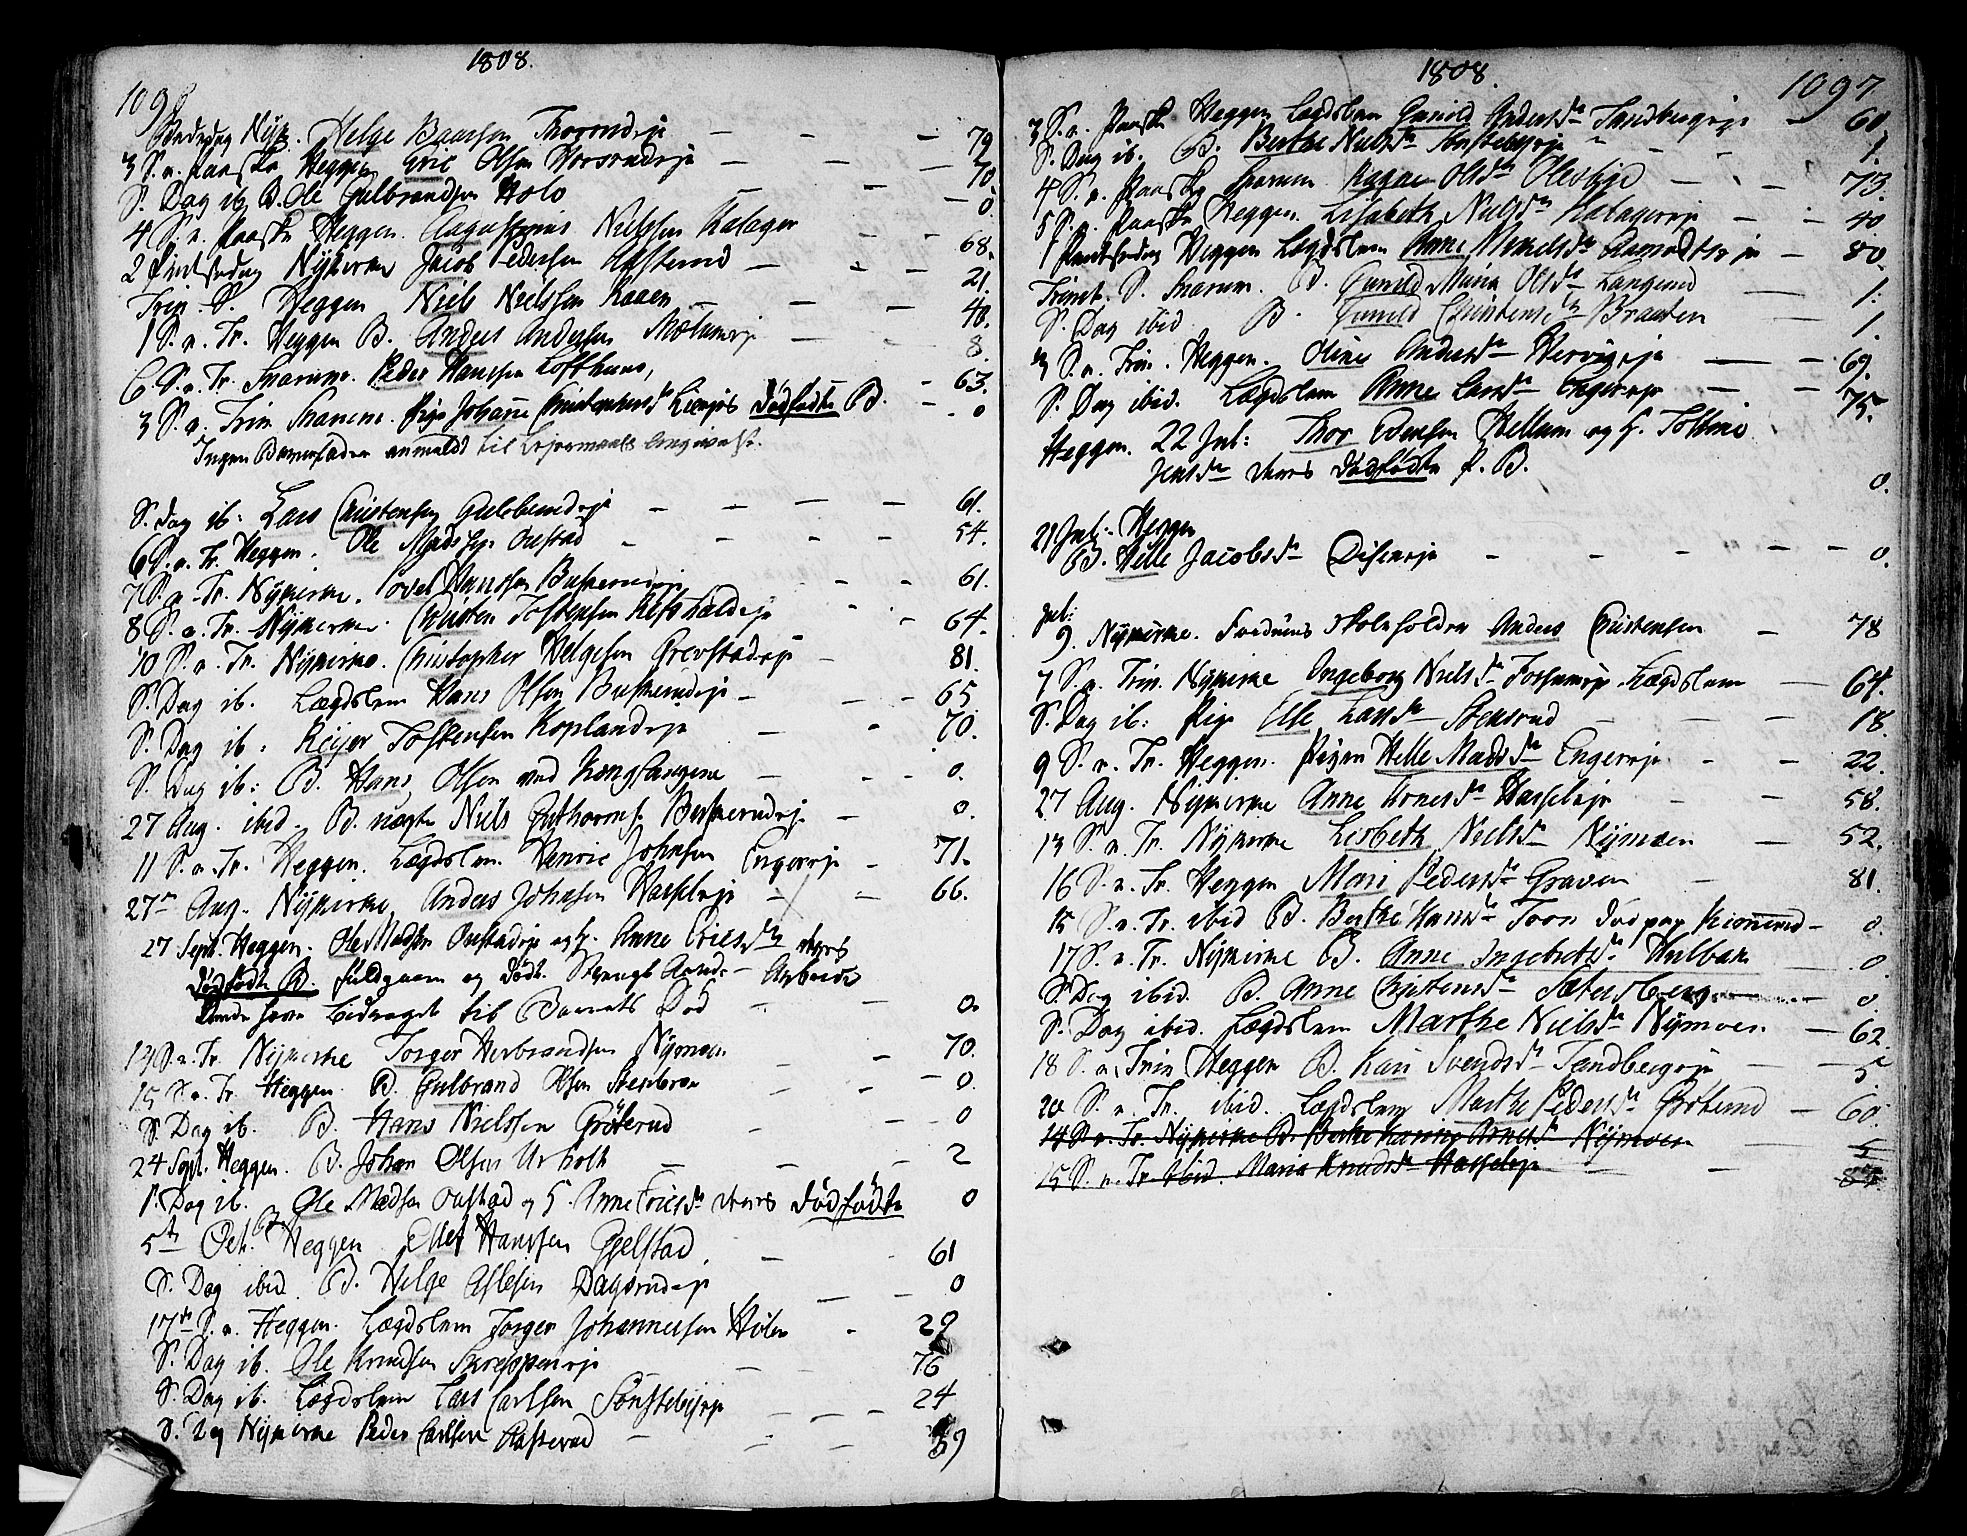 1808.
109
Bededag Nyk. Helge Baarsen Thorondeje — — — 79
3 S. n. Paaske Heggen Eric Olsen Horsrudeje — — — 70.
S. Dag ib. B. Ole Gulbrandsen Holo — — 0
4 S. n. Paaske Heggen. Augustinus Nielssen Kalager — — 68.
2 Pintsedag Nykirke Jacob Pedersen Hafterud — — — 21.
Trin. S. Heggen Niels Nielssen Kaaen — — — 48.
1 S. n. Tr. Heggen B. Anders Andersen 8.
6 S. n. Tr. Snarum. Peder Hanssen Lofthuus, — 63.
3 S. n. Trin Snarum. Pige Johanne Christophersdr dødfødte B. — 0
Ingen Barnefader anmeldt til Lejermaals Angivelse.
S. Dag ib: Lars Christensen Gulsbrudeje — — — 61.
6 S. n. Tr. Heggen. Ole Madssen Ourstad — — — 54.
7 S. n. Tr. Nykirke. Povel Hanssen Buskerudeje — — 61.
8 S. n. Tr. Nykirke. Christen Tostensen — — 64.
10 S. n. Tr. Nykirke. Christopher Helgesen Grevstadeje — 81.
S. Dag ib. Lægdslem Hans Olsen Buskerudeje — — — 65
S. Dag ib. Reijer Tostensen Koplandeje — — 70.
S. Dag ib: B. Hans Olsen ved Kongsangene — — — 0.
27 Aug. ibid. B. uægte Niels Guthorms. Buskerudeje — 0.
11 S. n. Tr. Heggen. Lægdslem Henric Johnsen Engereje — 71.
27de Aug. Nykirke Anders Johnsen Hasseleje — — 66.
27 Sept. Heggen. Ole Madsen Ourstadeje og H. Anne Ericsdr deres
dødfødte B. fuldgaaen og dødt. Strengt Arbeide
have bidraget til Barnets Død — — 0.
14 S. n. Tr. Nykirke Torger Herbrandsen Nymoen — 70.
15 S. n. Tr. Heggen. B. Gulbrand Olsen Stenbroe — — 0.
S. Dag ib. B. Hans Nielssen Grøterud — — — 0
24 Sept. Heggen. B. Johan Olsen Urholt — — — 2
S. Dag ib. B. Ole Madsen Ourstad og H. Anne Ericsdr deres dødfødte 0
5te Oct. Heggen Ellef Hanssen Gjelstad — 61
S. Dag ibid. B. Helge Aslesen Dagsrudeje — — 0
17de S. n. Heggen. Lægdslem Torger Johannessen Hølen — 29
S. Dag ib. Ole Knudsen Skreppeneje — — 76
S. Dag ib. Lægdslem Lars Carlsen Sønstebyeje — — — 24
S. Dag Nykirke Peder Carlsen Hafterud — — — 59
1808.
1097
3 S. n. Paaske Heggen Lægdslem Gunild Andersdr Tandbergeje — 60
S. Dag ib. B. Berthe Nielsdr Sønstebyeje — — — 1.
4 S. n. Paaske Snarum Olsdr — — — 73.
5 S. n. Paaske Heggen. Lisabeth Nielsdr Kalagereje — — 40
1 Pintsedag Heggen Lægdslem Anne Aamodtseje — 80.
Trinit. S. Snarum. B. Gunild Maria Olsdr Langerud — 1.
S. Dag ibid B. Gunild Christensdr Braaten — 1.
3 S. n. Trin. Heggen. Oline Andersdr Hervigeje — — 69.
S. Dag ibid. Lægdslem Anne Larsdr Engereje — — 75.
Heggen. 22 Jul: Thor Evensen Hellum og H. Tolline
Jensdr deres dødfødte P. B. 0.
21 Jul: Heggen
B. Helle Jacobsdr Diseneje — — — — — 0.
Jul:
9. Nykirke. Fordums Skoleholder Anders Christensen — 78
7 S. n. Trin. Nykirke Ingeborg Nielsdr Fossumeje Lægdslem — 64.
S. Dag ib: Pige Else Larsdr Stensrud — — — 18.
9 S. n. Tr. Heggen. Pigen Helle Madsdr Engereje — — 22.
27 Aug. Nykirke Anne Arnesdr Hasseleje — — 58.
13 S. n. Tr. Nykirke Lisbeth Nielsdr Nymoen — 52.
16 S. n. Tr. Heggen Mari Pedersdr Graven — 81.
15 S. n. Tr. ibid B. Berthe Hansdr Toon død paa — 0
17 S. n. Tr. Nykirke B. Anne Ingebretsdr Hulbak — 0.
S. Dag ibid. B. Anne Christensdr Sætersberg — 0
S. Dag ibid. Lægdslem Marthe Nielsdr Nymoen — 62.
18 S. n. Trin Heggen B. Kari Svendsdr Tandbergeje — — 5
20 S. n. Tr. ibid. Lægdslem Marthe Pedersdr Grøterud — 60.
14 S. n. Tr. Nykirke B. Berthe Karine Arnesdr Nymoen — 5
15 S. n. Tr. ibid. Maria Knudsdr Hasseleje — — 84.